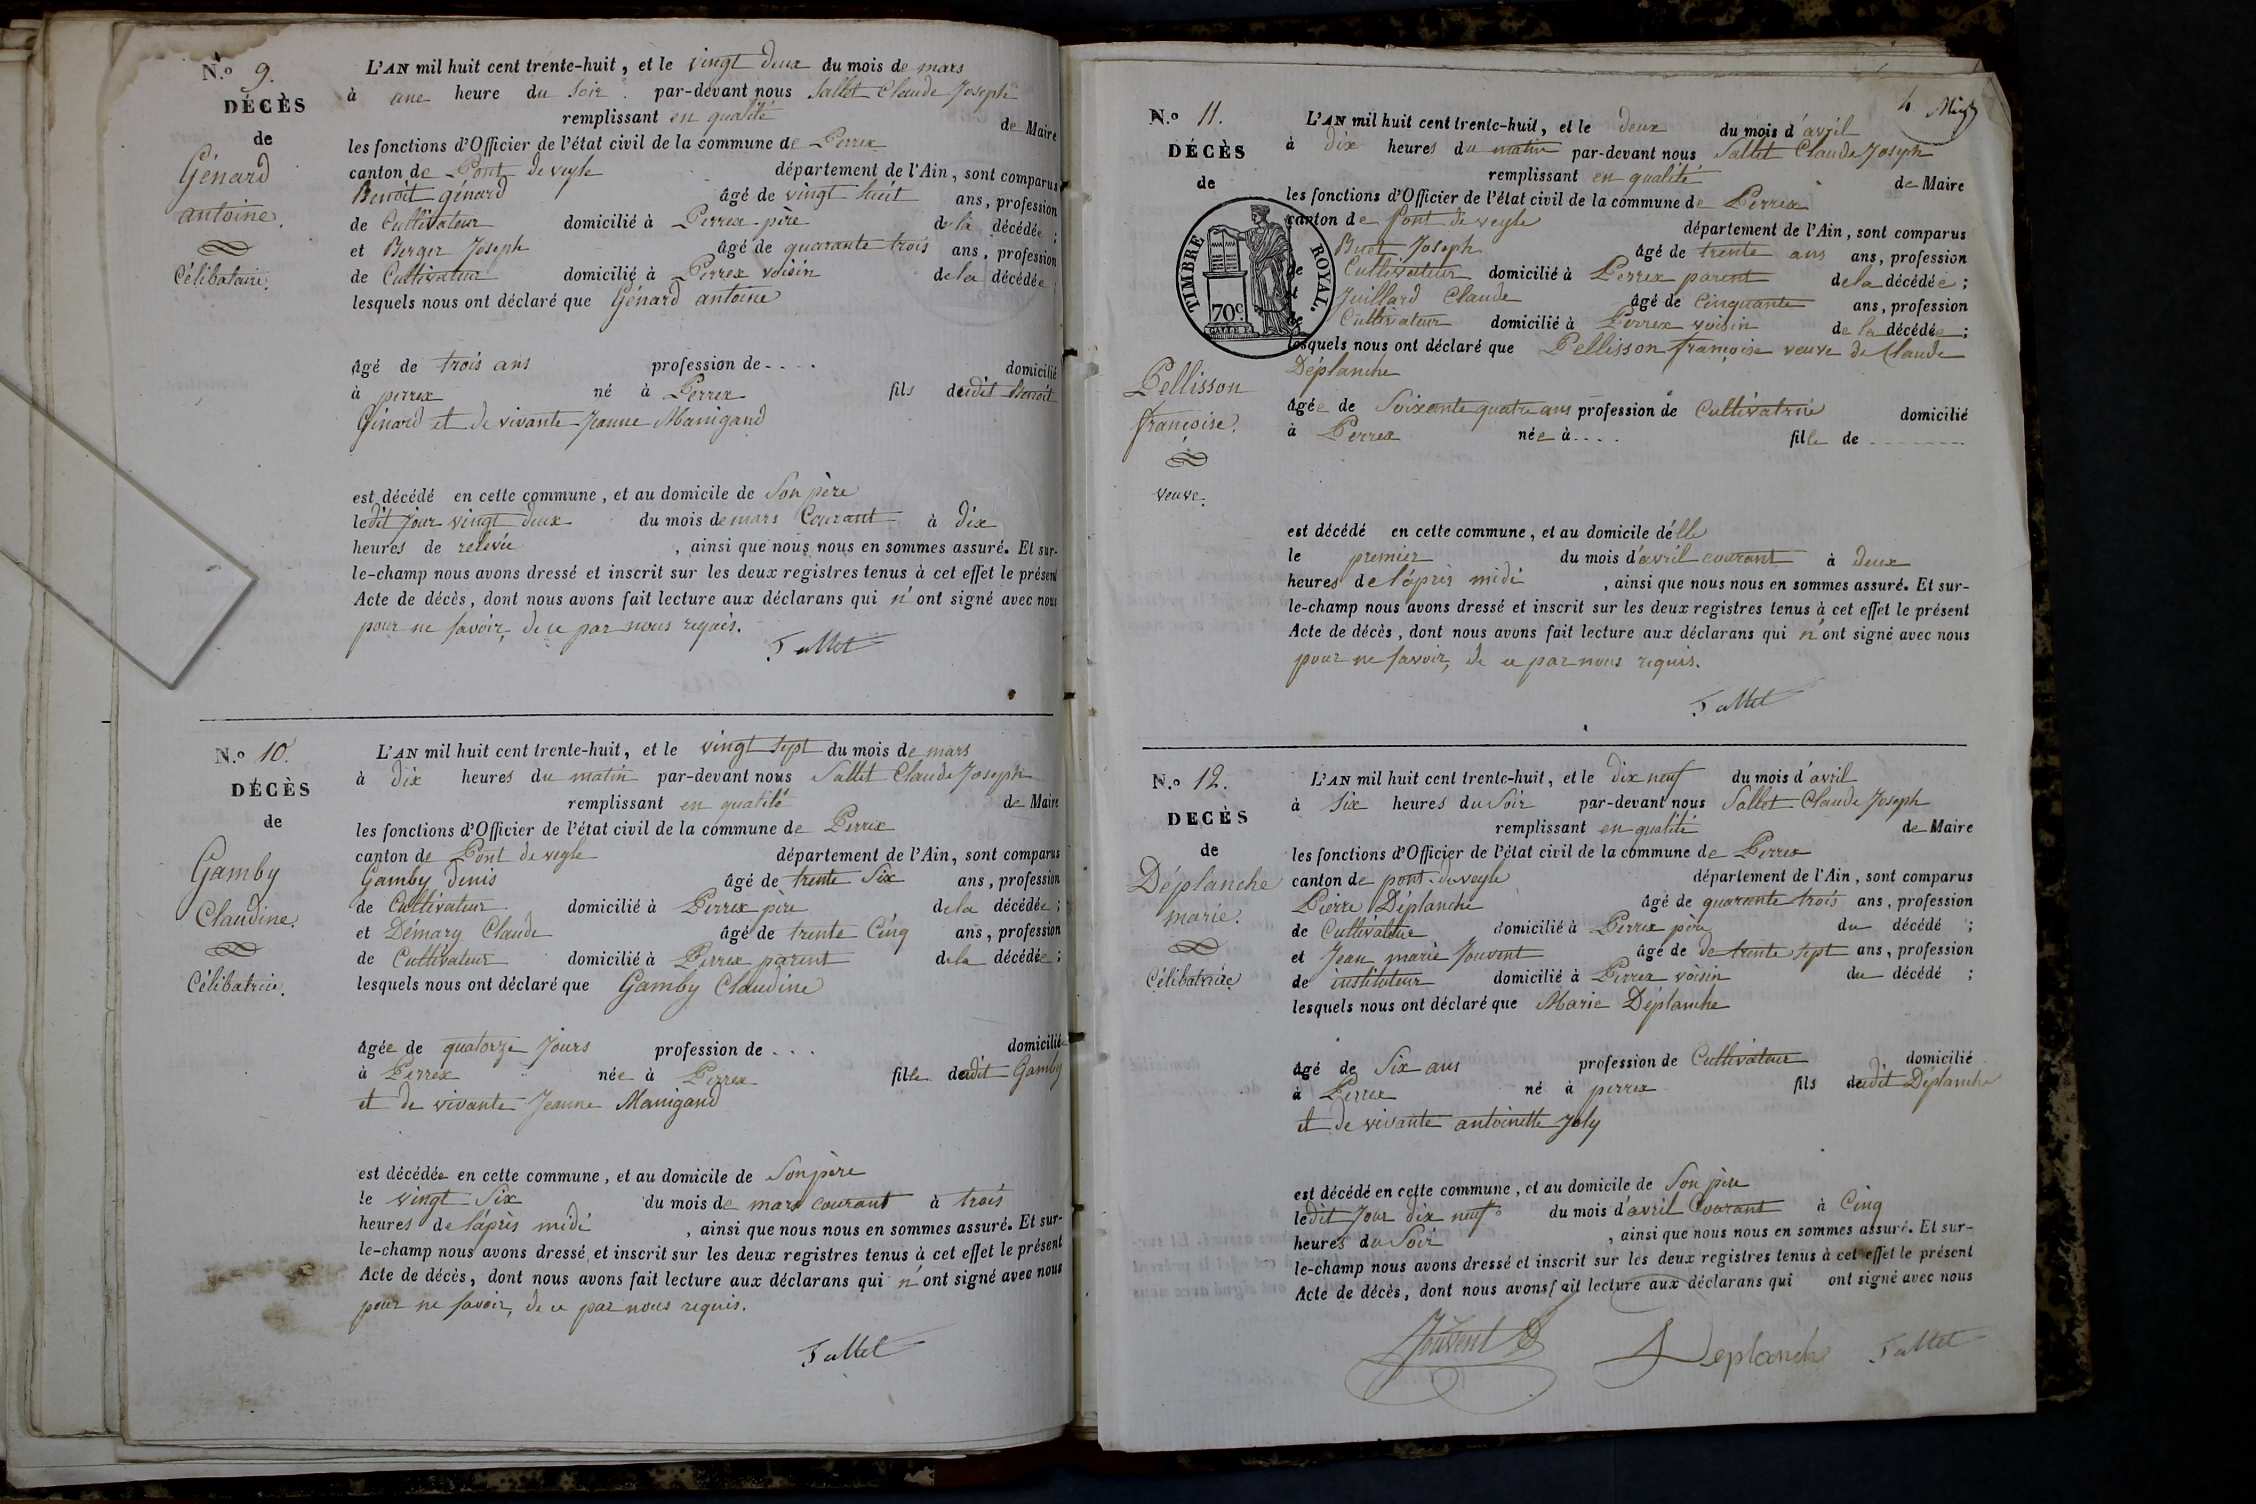 N.º 9.
DÉCÈS
de
Génard
antoine.
Célibataire.
L'AN mil huit cent trente-huit, et le vingt deux du mois de mars
à une heure du soir par-devant nous Sallet Claude Joseph
remplissant en qualité de Maire
les fonctions d'Officier de l'état civil de la commune de Perrex
canton de Pont de veyle département de l'Ain, sont comparus
Benoit génard âgé de vingt huit ans, profession
de Cultivateur domicilié à Perrex père de la décédée;
et Berger Joseph âgé de quarante trois ans, profession
de Cultivateur domicilié à Perrex voisin de la décédée;
lesquels nous ont déclaré que Génard antoine
âgé de trois ans profession de - - - - domicilié
à perrex né à Perrex fils dudit Benoit
Génard et de vivante Jeanne Manigand
est décédé en cette commune, et au domicile de Son père
ledit jour vingt deux du mois de mars Courant à dix
heures de relevée, ainsi que nous nous en sommes assuré. Et sur-
le-champ nous avons dressé et inscrit sur les deux registres tenus à cet effet le présent
Acte de décès, dont nous avons fait lecture aux déclarans qui n'ont signé avec nous
pour ne savoir, de ce par nous requis.
Sallet
N.º 10.
DÉCÈS
de
Gamby
Claudine.
Célibatrice.
L'AN mil huit cent trente-huit, et le vingt sept du mois de mars
à dix heures du matin par-devant nous Sallet Claude Joseph
remplissant en qualité de Maire
les fonctions d'Officier de l'état civil de la commune de Perrex
canton de Pont de veyle département de l'Ain, sont comparus
Gamby denis âgé de trente Six ans, profession
de Cultivateur domicilié à Perrex père de la décédée;
et Démary Claude âgé de trente Cinq ans, profession
de Cultivateur domicilié à Perrex parent de la décédée;
lesquels nous ont déclaré que Gamby Claudine
âgée de quatorze Jours profession de - - - domicilié
à Perrex née à Perrex fille dudit Gamby
et de vivante Jeanne Manigand
est décédée en cette commune, et au domicile de Son père
le vingt Six du mois de mars courant à trois
heures de l'après midi, ainsi que nous nous en sommes assuré. Et sur-
le-champ nous avons dressé et inscrit sur les deux registres tenus à cet effet le présent
Acte de décès, dont nous avons fait lecture aux déclarans qui n'ont signé avec nous
pour ne savoir, de ce par nous requis.
Sallet
4
N.º 11.
DÉCÈS
de
TIMBRE ROYAL.
70 c.
Pellisson
françoise.
veuve.
L'AN mil huit cent trente-huit, et le deux du mois d'avril
à dix heures du matin par-devant nous Sallet Claude Joseph
remplissant en qualité de Maire
les fonctions d'Officier de l'état civil de la commune de Perrex
canton de Pont de veyle département de l'Ain, sont comparus
Joseph âgé de trente ans ans, profession
de Cultivateur domicilié à Perrex parent de la décédée;
et Juillard Claude âgé de Cinquante ans, profession
de Cultivateur domicilié à Perrex voisin de la décédée;
lesquels nous ont déclaré que Pellisson françoise veuve de Claude
Déplanche
âgée de Soixante quatre ans profession de Cultivatrice domicilié
à Perrex née à - - - - fille de - - - - - -
est décédé en cette commune, et au domicile d'elle
le premier du mois d'avril courant à deux
heures de l'après midi, ainsi que nous nous en sommes assuré. Et sur-
le-champ nous avons dressé et inscrit sur les deux registres tenus à cet effet le présent
Acte de décès, dont nous avons fait lecture aux déclarans qui n'ont signé avec nous
pour ne savoir, de ce par nous requis.
Sallet
N.º 12.
DECÈS
de
Déplanche
marie.
Célibatrice
L'AN mil huit cent trente-huit, et le dix neuf du mois d'avril
à Six heures du Soir par-devant nous Sallet Claude Joseph
remplissant en qualité de Maire
les fonctions d'Officier de l'état civil de la commune de Perrex
canton de pont de veyle département de l'Ain, sont comparus
Pierre Déplanche âgé de quarante trois ans, profession
de Cultivateur domicilié à Perrex père du décédé;
et Jean marie Jouvent âgé de de trente sept ans, profession
de instituteur domicilié à Perrex voisin du décédé;
lesquels nous ont déclaré que Marie Déplanche
âgé de Six ans profession de Cultivateur domicilié
à Perrex né à perrex fils dudit Déplanche
et de vivante antoinette Joly
est décédé en cette commune, et au domicile de Son père
ledit Jour dix neuf du mois d'avril Courant à Cinq
heures du Soir, ainsi que nous nous en sommes assuré. Et sur-
le-champ nous avons dressé et inscrit sur les deux registres tenus à cet effet le présent
Acte de décès, dont nous avons fait lecture aux déclarans qui ont signé avec nous
Jouvent Deplanche Sallet